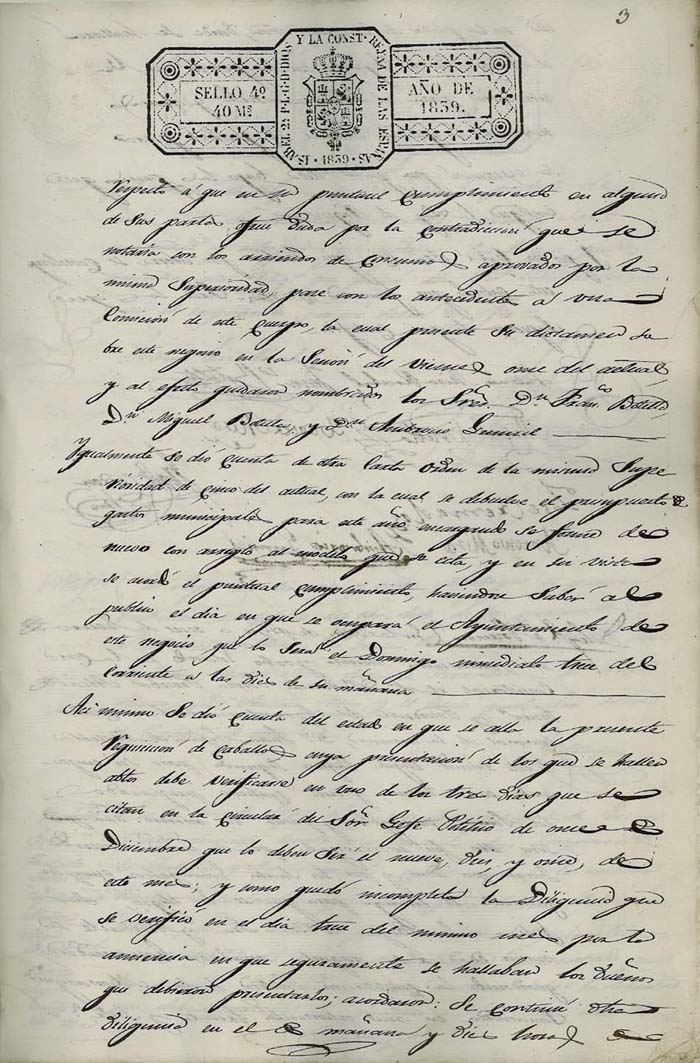 3
ISABEL 2ª P.L.G.D.DIOS Y LA CONST. REYNA DE LAS ESPAÑAS
SELLO 4º
40 Ms
AÑO DE
1839.
1839
respecto a que en su puntual cumplimiento en alguna
de sus partes, ofrece duda por la contradicion que se
notaria con los arriendos de Consumos aprovados por la
misma Superioridad, pase con los antecedentes a una
Comision de este Cuerpo, la cual presente su dictamen so
bre este negocio en la Sesion del Viernes once del actual,
y al efecto quedaron nombrados los Sres. Dn. Franco. Botella,
Dn. Miguel Botella, y Dn. Ambrosio
Ygualmente se dió cuenta de otra Carta Orden de la misma Supe
rioridad de cinco del actual, con la cual se debuelve el presupuesto de
gastos municipales para este año, encargando se forme de
nuevo con arreglo al modelo que se cita, y en su vista
se acordó el puntual cumplimiento, haciendose Saber al
publico el dia en que se ocupará el Ayuntamiento de
este negocio que lo Será el Domingo inmediato trece del
Corriente a las diez de su mañana
Asi mismo se dió cuenta del estado en que se alla la presente
requisicion de Caballos, cuya presentacion de los que se hallen
abtos debe verificarse en uno de los tres dias que se
citan en la Circular del Sor. Gefe Politico de once de
Diciembre que lo deben Ser el nueve, diez, y once, de
este mes; y como quedó incompleta la Diligencia que
se verificó en el dia trece del mismo mes por la
ausencia en que seguramente se hallaban los dueños
que debieron presentarlos; acordaron: Se continue otra
diligencia en el de mañana y diez horas de